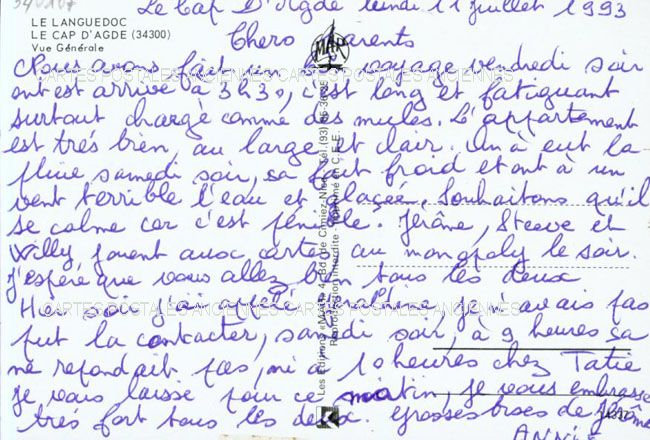 Le Cap D'Agde lundi 11 juillet 1993
LE LANGUEDOC
LE CAP D'AGDE (34300)
Vue Générale
MAR
Chers Parents
Nous avons fait un bon voyage vendredi soir
ont est arrivé à 3h30, c'est long et fatiguant
surtout chargé comme des mules. L'appartement
est trés bien, au large et clair. On à eut la
pluie samedi soir, sa fait froid et ont à un
vent terrible l'eau et glaçée, souhaitons qu'il
se calme car c'est pénible. Jérôme, Steeve et
Willy jouent aux cartes au monopoly le soir.
j'espéré que vous allez bien tous les deux
Hier soir j'ai appelé je avais pas
put la contacter, samedi soir, à 9 heures sa
ne repondait pas, ni à 10 heures chez Tatie
je vous laisse pour ce matin, je vous embrasse
trés fort tous les deux. grosses bises de Jérôme
ANNIE
CARTES POSTALES ANCIENNES CARTES POSTALES ANCIENNES
CARTES POSTALES ANCIENNES CARTES POSTALES ANCIENNES